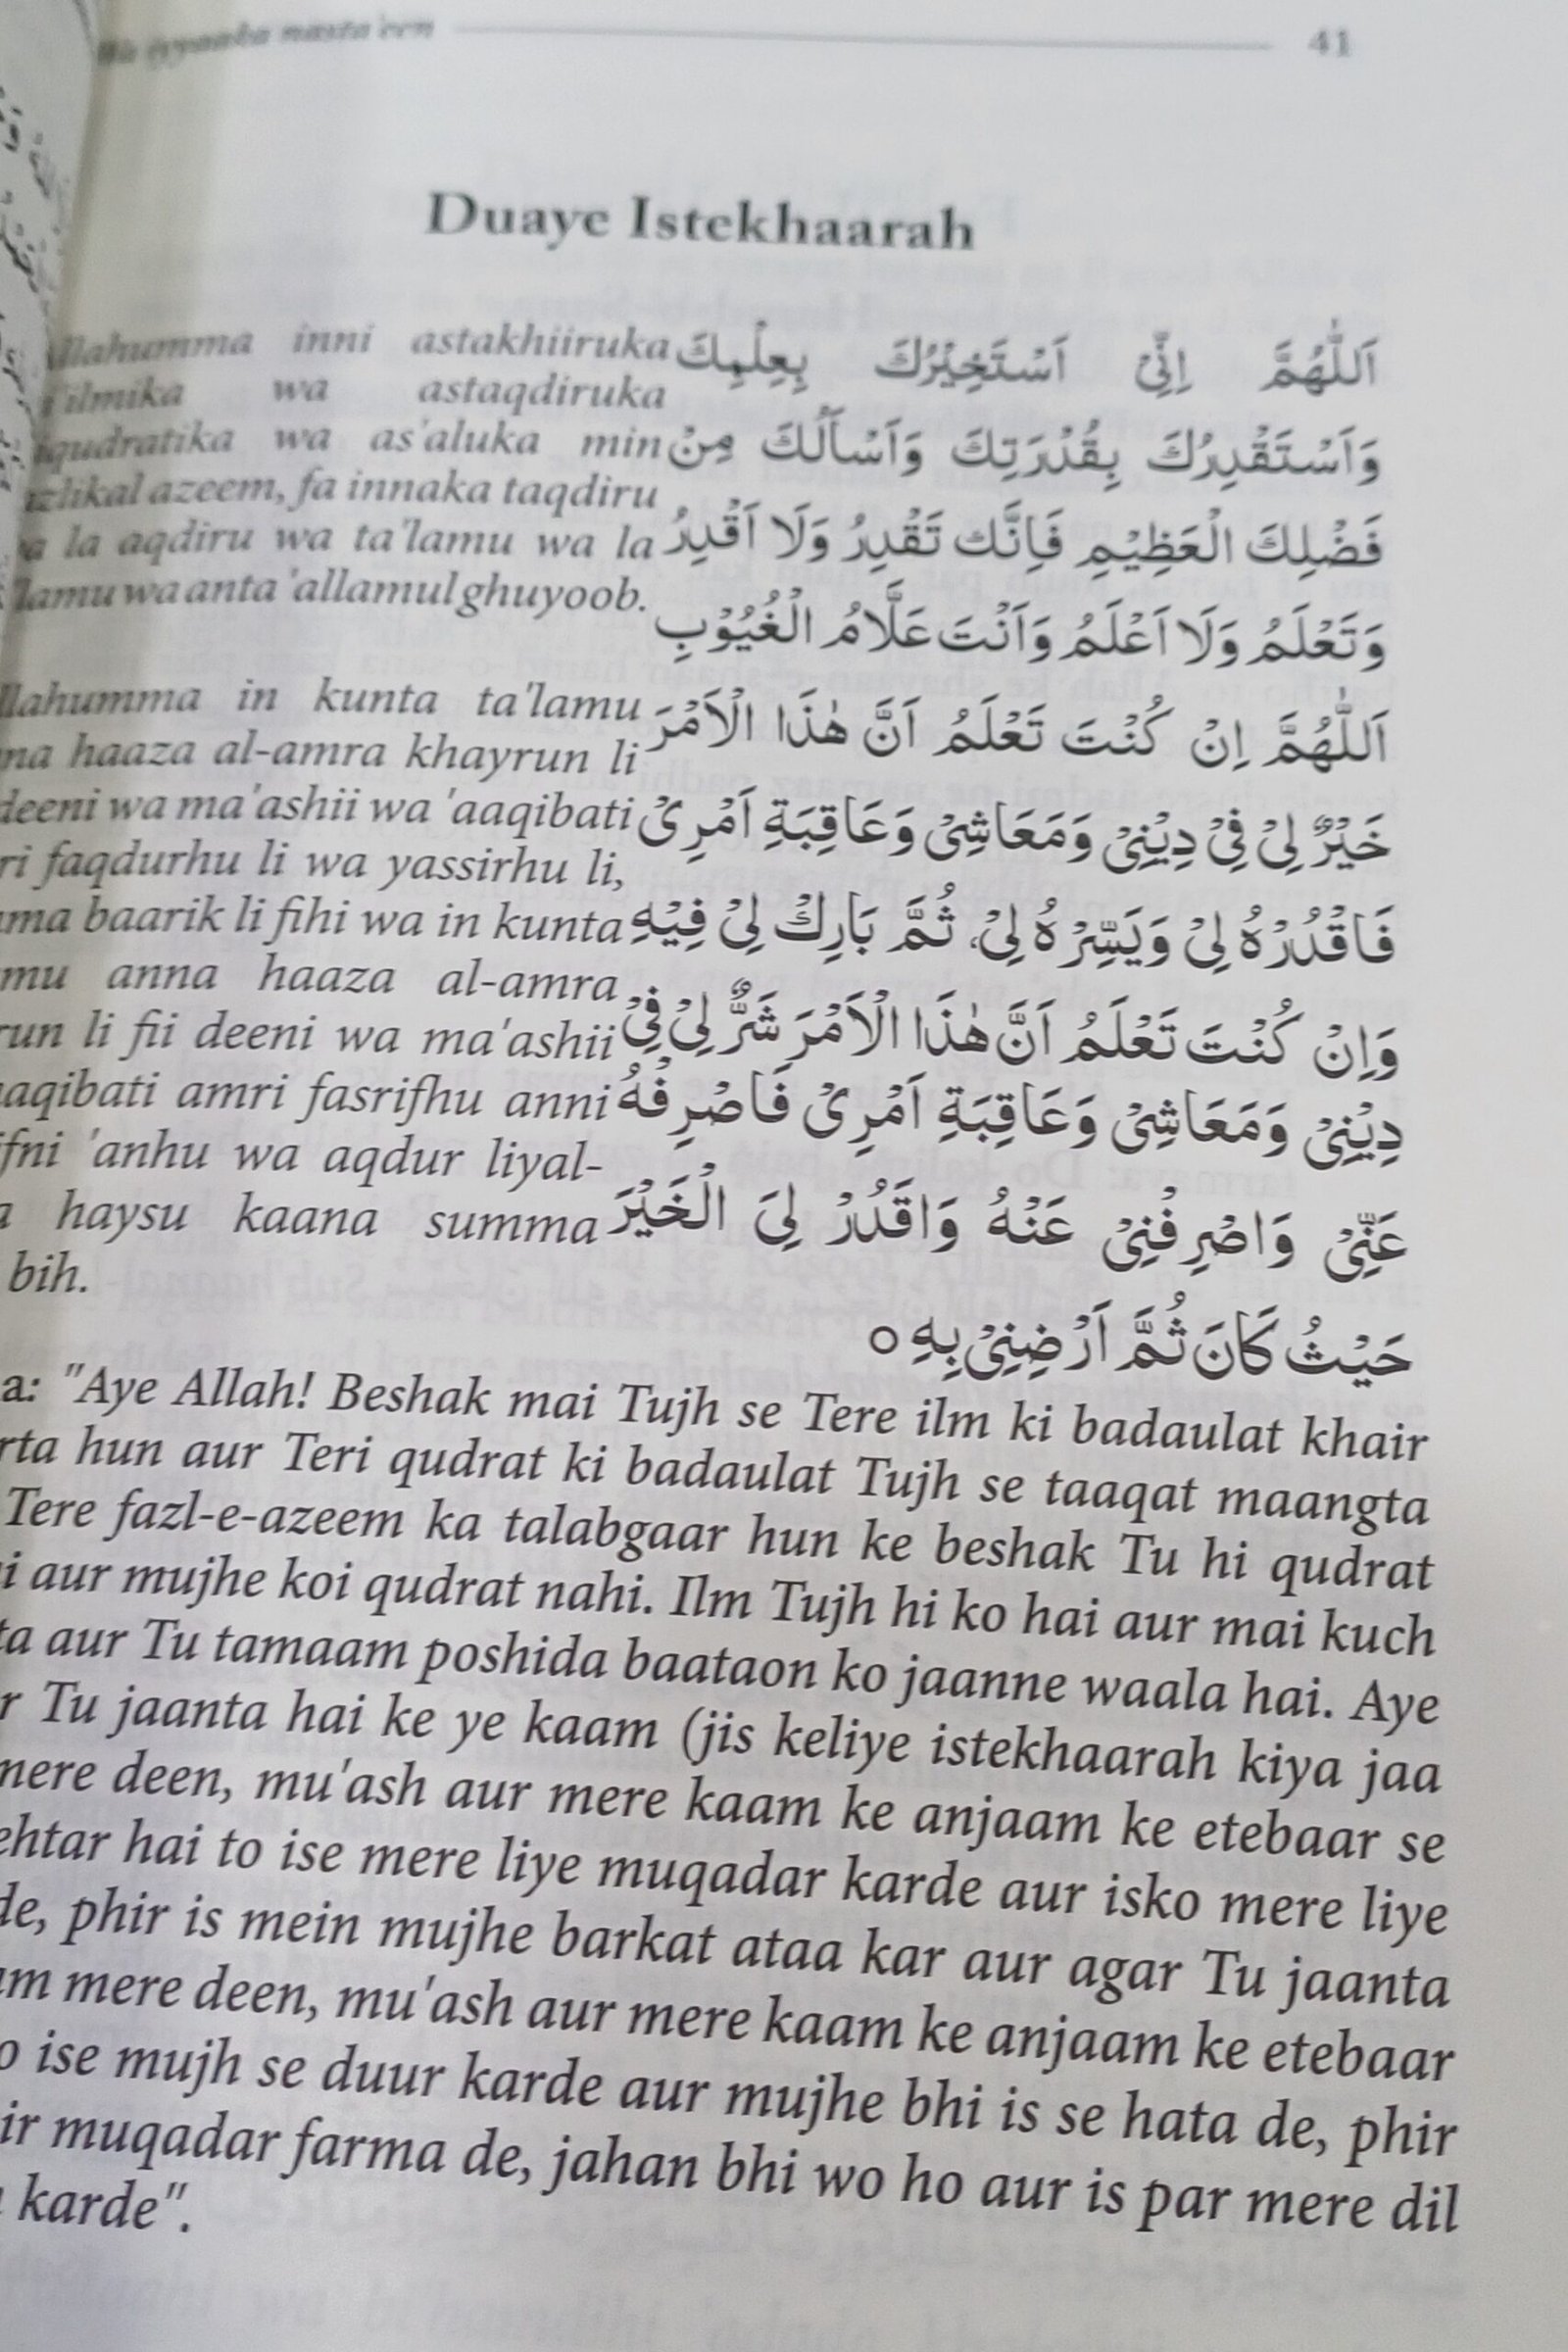 iyyaaka nasta'een 41
Duaye Istekhaarah
inni astakhiiruka
wa astaqdiruka
wa as'aluka min
azeem, fa innaka taqdiru
la aqdiru wa ta'lamu wa la
wa anta 'allamul ghuyoob.
in kunta ta'lamu
haaza al-amra khayrun li
deeni wa ma'ashii wa 'aaqibati
faqdurhu li wa yassirhu li,
baarik li fihi wa in kunta
anna haaza al-amra
li fii deeni wa ma'ashii
amri fasrifhu anni
'anhu wa aqdur liyal-
haysu kaana summa
bih.
اَللّٰهُمَّ اِنِّيْ اَسْتَخِيْرُكَ بِعِلْمِكَ
وَاَسْتَقْدِرُكَ بِقُدْرَتِكَ وَاَسْأَلُكَ مِنْ
فَضْلِكَ الْعَظِيْمِ فَاِنَّكَ تَقْدِرُ وَلَا اَقْدِرُ
وَتَعْلَمُ وَلَا اَعْلَمُ وَاَنْتَ عَلَّامُ الْغُيُوْبِ
اَللّٰهُمَّ اِنْ كُنْتَ تَعْلَمُ اَنَّ هٰذَا الْاَمْرَ
خَيْرٌ لِيْ فِيْ دِيْنِيْ وَمَعَاشِيْ وَعَاقِبَةِ اَمْرِيْ
فَاقْدُرْهُ لِيْ وَيَسِّرْهُ لِيْ، ثُمَّ بَارِكْ لِيْ فِيْهِ
وَاِنْ كُنْتَ تَعْلَمُ اَنَّ هٰذَا الْاَمْرَ شَرٌّ لِيْ فِيْ
دِيْنِيْ وَمَعَاشِيْ وَعَاقِبَةِ اَمْرِيْ فَاصْرِفْهُ
عَنِّيْ وَاصْرِفْنِيْ عَنْهُ وَاقَدُرْ لِيَ الْخَيْرَ
حَيْثُ كَانَ ثُمَّ اَرْضِنِيْ بِهِ ○
"Aye Allah! Beshak mai Tujh se Tere ilm ki badaulat khair
hun aur Teri qudrat ki badaulat Tujh se taaqat maangta
Tere fazl-e-azeem ka talabgaar hun ke beshak Tu hi qudrat
aur mujhe koi qudrat nahi. Ilm Tujh hi ko hai aur mai kuch
aur Tu tamaam poshida baataon ko jaanne waala hai. Aye
Tu jaanta hai ke ye kaam (jis keliye istekhaarah kiya jaa
mere deen, mu'ash aur mere kaam ke anjaam ke etebaar se
hai to ise mere liye muqadar karde aur isko mere liye
de, phir is mein mujhe barkat ataa kar aur agar Tu jaanta
mere deen, mu'ash aur mere kaam ke anjaam ke etebaar
ise mujh se duur karde aur mujhe bhi is se hata de, phir
muqadar farma de, jahan bhi wo ho aur is par mere dil
karde".